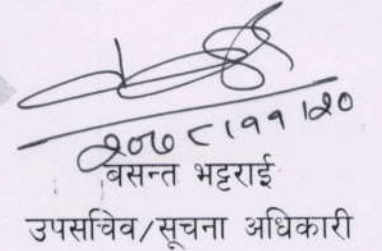 २०७८।११।२०
बसन्त भट्टराई
उपसचिव/सूचना अधिकारी